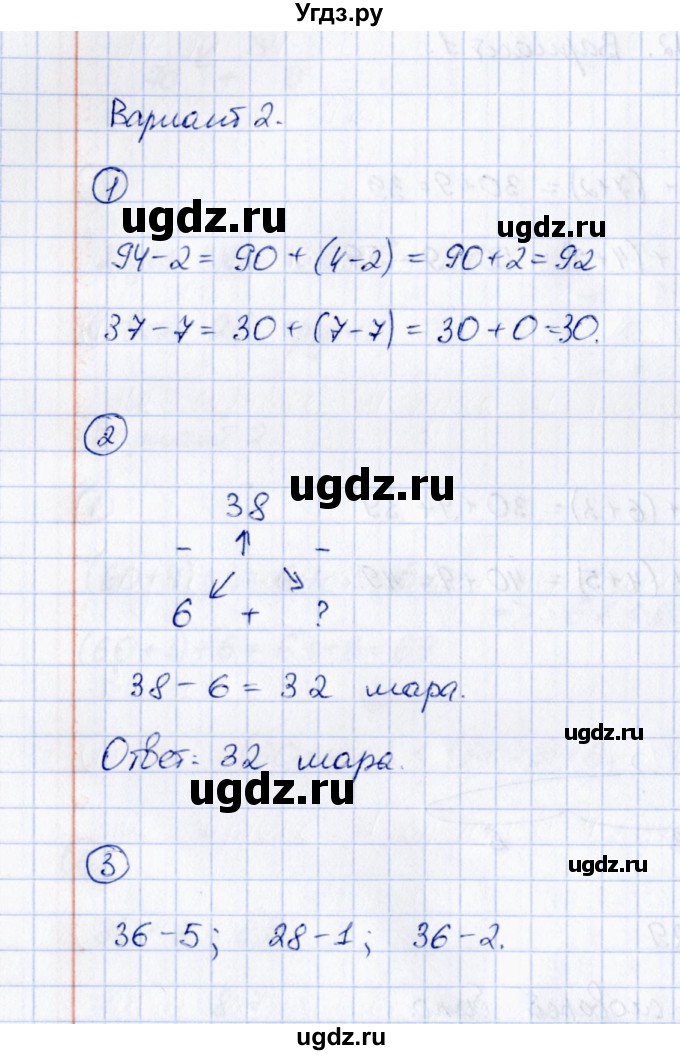 Угдз.ру
Вариант 2.
1
ugdz.ru
ugdz.ru
94-2 = 90 + (4-2) = 90+2 = 92
37-7 = 30 + (7-7) = 30 + 0 = 30.
2
ugdz.ru
38
- ↑ -
↙ ↘
6 + ?
38 - 6 = 32 шара.
ugdz.ru
Ответ: 32 шара.
ugdz.ru
3
ugdz.ru
36-5; 28-1; 36-2.
ugdz.ru